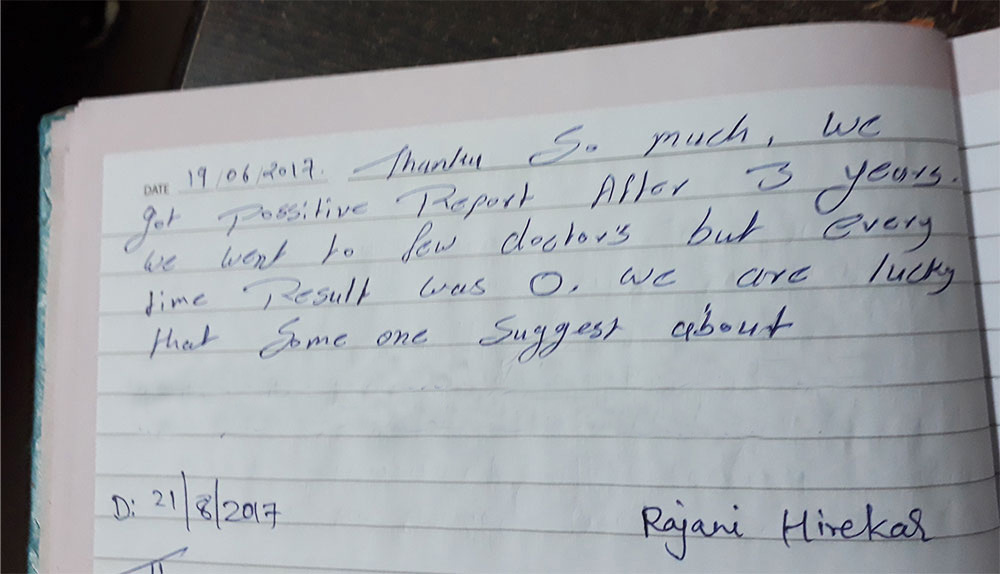 DATE 19/06/2017. Thanku So much, we
got Possitive Report After 3 years.
we went to few doctor's but every
time Result was 0. we are lucky
that Some one Suggest about
D: 21/8/2017 Rajani Hirekar